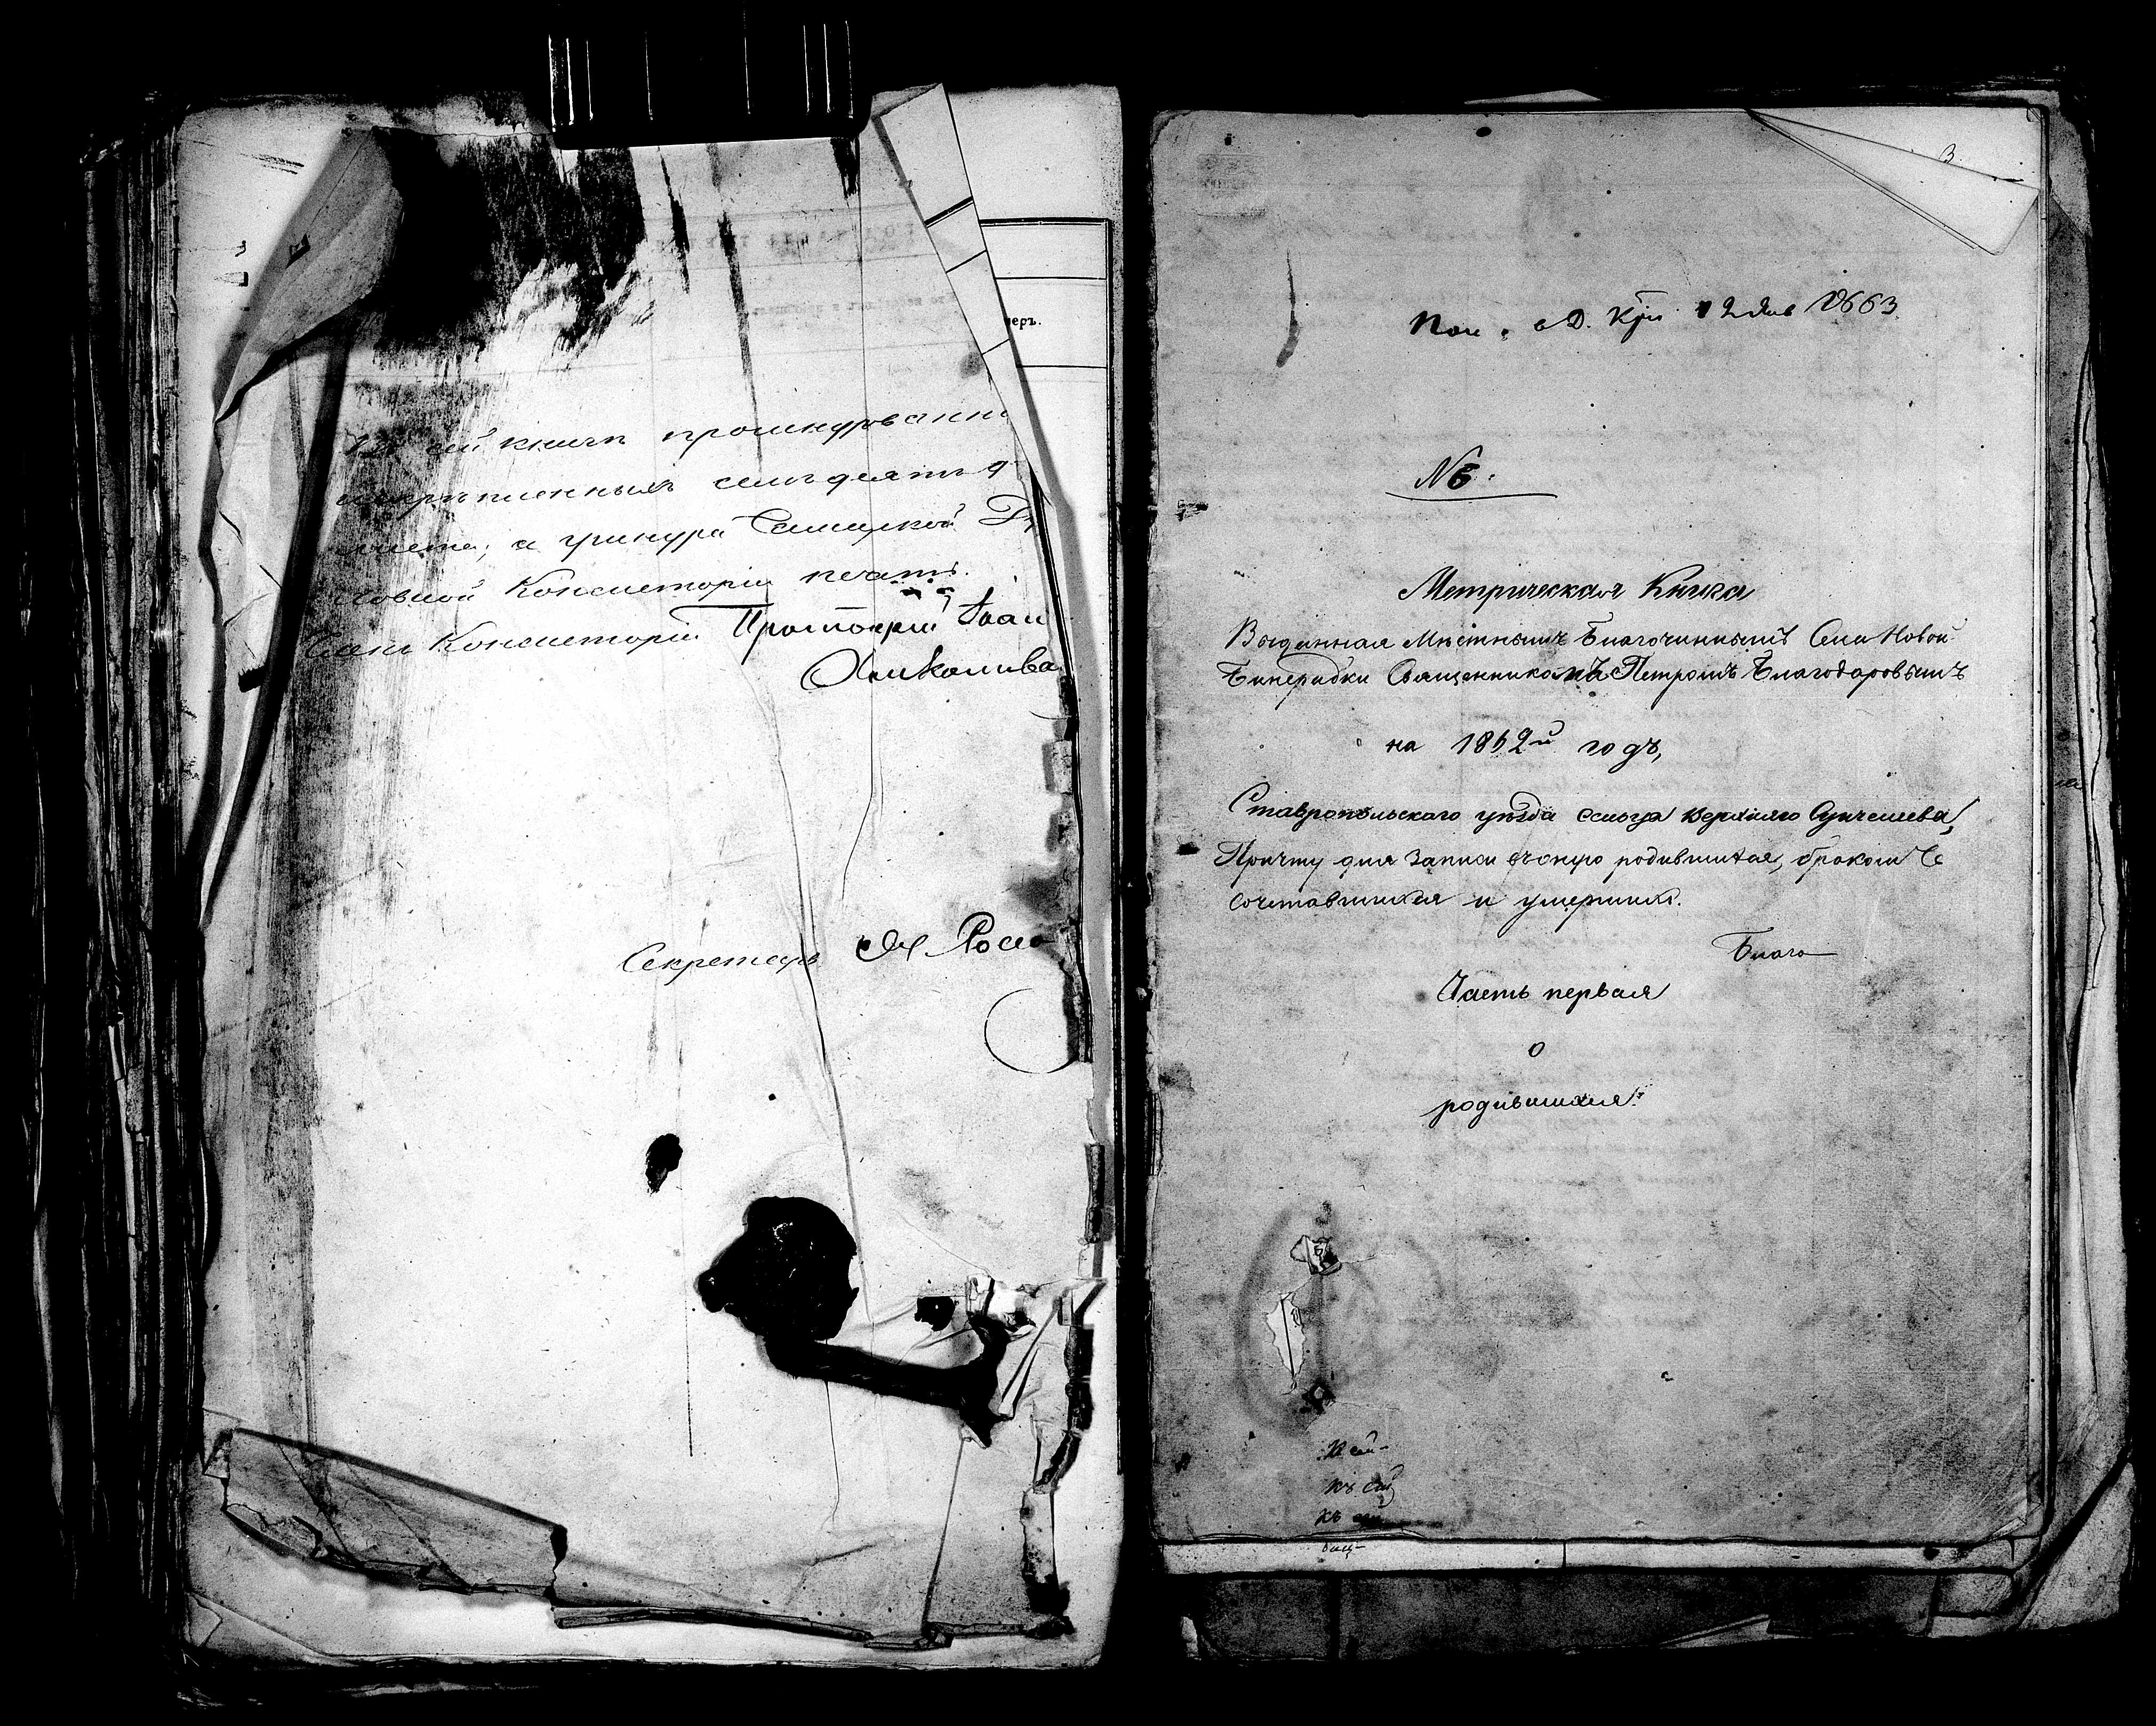 Въ сей книгѣ прошнурованн
и скрѣпленныхъ семьдесятъ
листа, а шнура Самарской Ду
ховной Консисторіи печать.
Членъ Консисторіи Протоіерей Іоан
Халколива
Секретарь
веръ.
3
12 Янв 1863
№ 6.
Метрическая Книга
Выданная Мѣстнымъ Благочиннымъ Села Новой
Бинерадки Священникомъ Петромъ Благодаровымъ
на 1862й годъ,
Ставропольскаго уѣзда сельца Верхняго Сунчелеева,
Причту для записи въ оную родившихся, бракомъ Со
сочетавшихся и умершихъ.
Благо
Часть первая
о
родившихся.
Къ сей
къ сей
къ сей